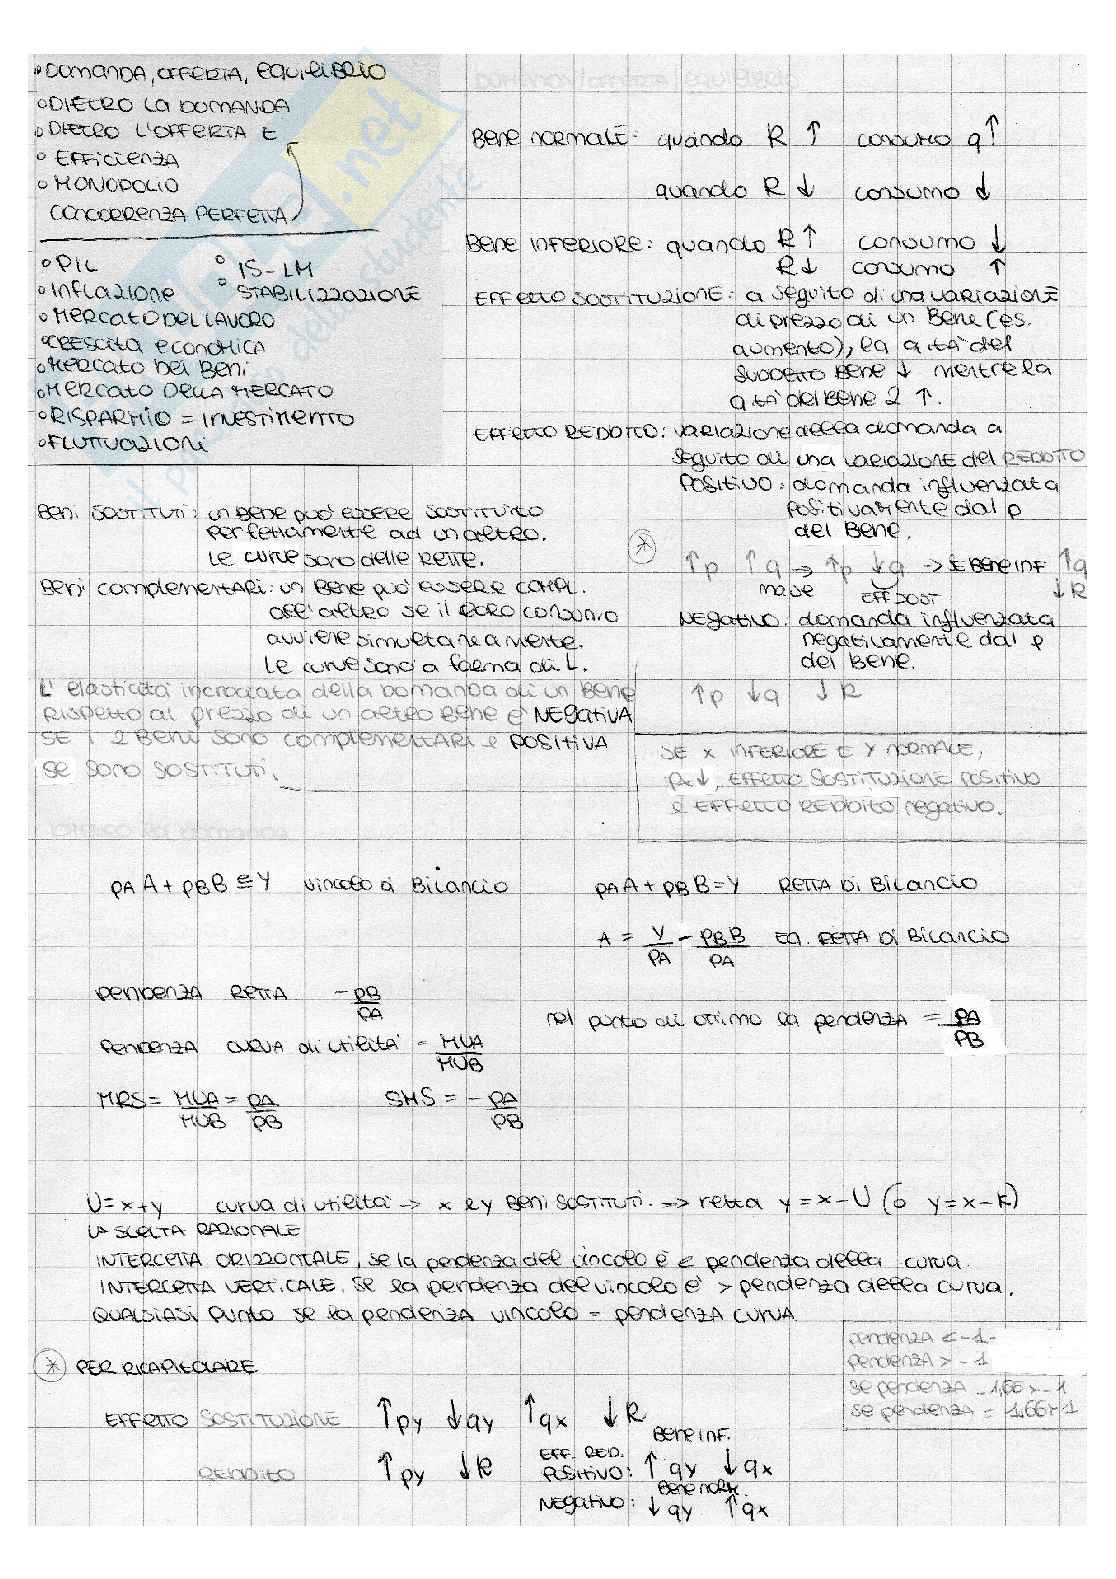 ° DOMANDA, OFFERTA, EQUILIBRIO
° DIETRO LA DOMANDA
° DIETRO L'OFFERTA E
° EFFICIENZA
° MONOPOLIO
CONCORRENZA PERFETTA
° PIL
° INFLAZIONE
° MERCATO DEL LAVORO
° CRESCITA ECONOMICA
° MERCATO DEI BENI
° MERCATO DELLA MERCATO
° RISPARMIO = INVESTIMENTO
° FLUTTUAZIONI
° IS-LM
° STABILIZZAZIONE
BENI SOSTITUTI: un BENE può ESSERE SOSTITUITO
perfettamente ad un altro.
Le curve sono delle RETTE.
BENI COMPLEMENTARI: un BENE può ESSERE COMPL.
all'altro se il loro consumo
avviene simultaneamente.
Le curve sono a forma di L.
L'elasticità incrociata della domanda di un BENE
RISPETTO al prezzo di un altro BENE è NEGATIVA
SE I 2 BENI SONO COMPLEMENTARI e POSITIVA
se sono SOSTITUTI.
BENE NORMALE: quando R ↑ consumo q ↑
quando R ↓ consumo ↓
BENE INFERIORE: quando R ↑ consumo ↓
R ↓ consumo ↑
EFFETTO SOSTITUZIONE: a seguito di una VARIAZIONE
di prezzo di un BENE (es.
aumento), la q.tà del
SUDDETTO BENE ↓ mentre la
q.tà del BENE 2 ↑.
EFFETTO REDDITO: VARIAZIONE della domanda a
seguito di una VARIAZIONE del REDDITO
POSITIVO: domanda influenzata
positivamente dal p
del BENE.
* ↑p ↑q → ↑p ↓q → SE BENE INF ↑q
EFF SOST ↓R
NEGATIVO: domanda influenzata
negativamente dal p
del BENE.
↑p ↓q ↓R
SE X INFERIORE E Y NORMALE,
px↓, EFFETTO SOSTITUZIONE POSITIVO
e EFFETTO REDDITO NEGATIVO.
pA A + pB B ≤ Y vincolo di Bilancio
pA A + pB B = Y RETTA DI BILANCIO
A = Y/pA - pB B/pA EQ. RETTA DI BILANCIO
PENDENZA RETTA -pB/pA
nel punto di ottimo la pendenza = pA/pB
PENDENZA CURVA di UTILITA' - MUA/MUB
MRS = MUA/MUB = pA/pB SMS = - pA/pB
U = x+y curva di utilità → x e y BENI SOSTITUTI. → retta y = x-U (o y = x-k)
LA SCELTA RAZIONALE
INTERCETTA ORIZZONTALE, se la pendenza del vincolo è < pendenza della curva.
INTERCETTA VERTICALE, se la pendenza del vincolo è > pendenza della curva.
QUALSIASI PUNTO se la pendenza VINCOLO = pendenza CURVA
pendenza < -1-
pendenza > -1
se pendenza -1,66 > -1
se pendenza = 1,66 > 1
* PER RICAPITOLARE
EFFETTO SOSTITUZIONE ↑py ↓qy ↑qx ↓R
REDDITO ↑py ↓R EFF. RED. POSITIVO: BENE INF. ↑qy ↓qx
NEGATIVO: BENE NORM. ↓qy ↑qx